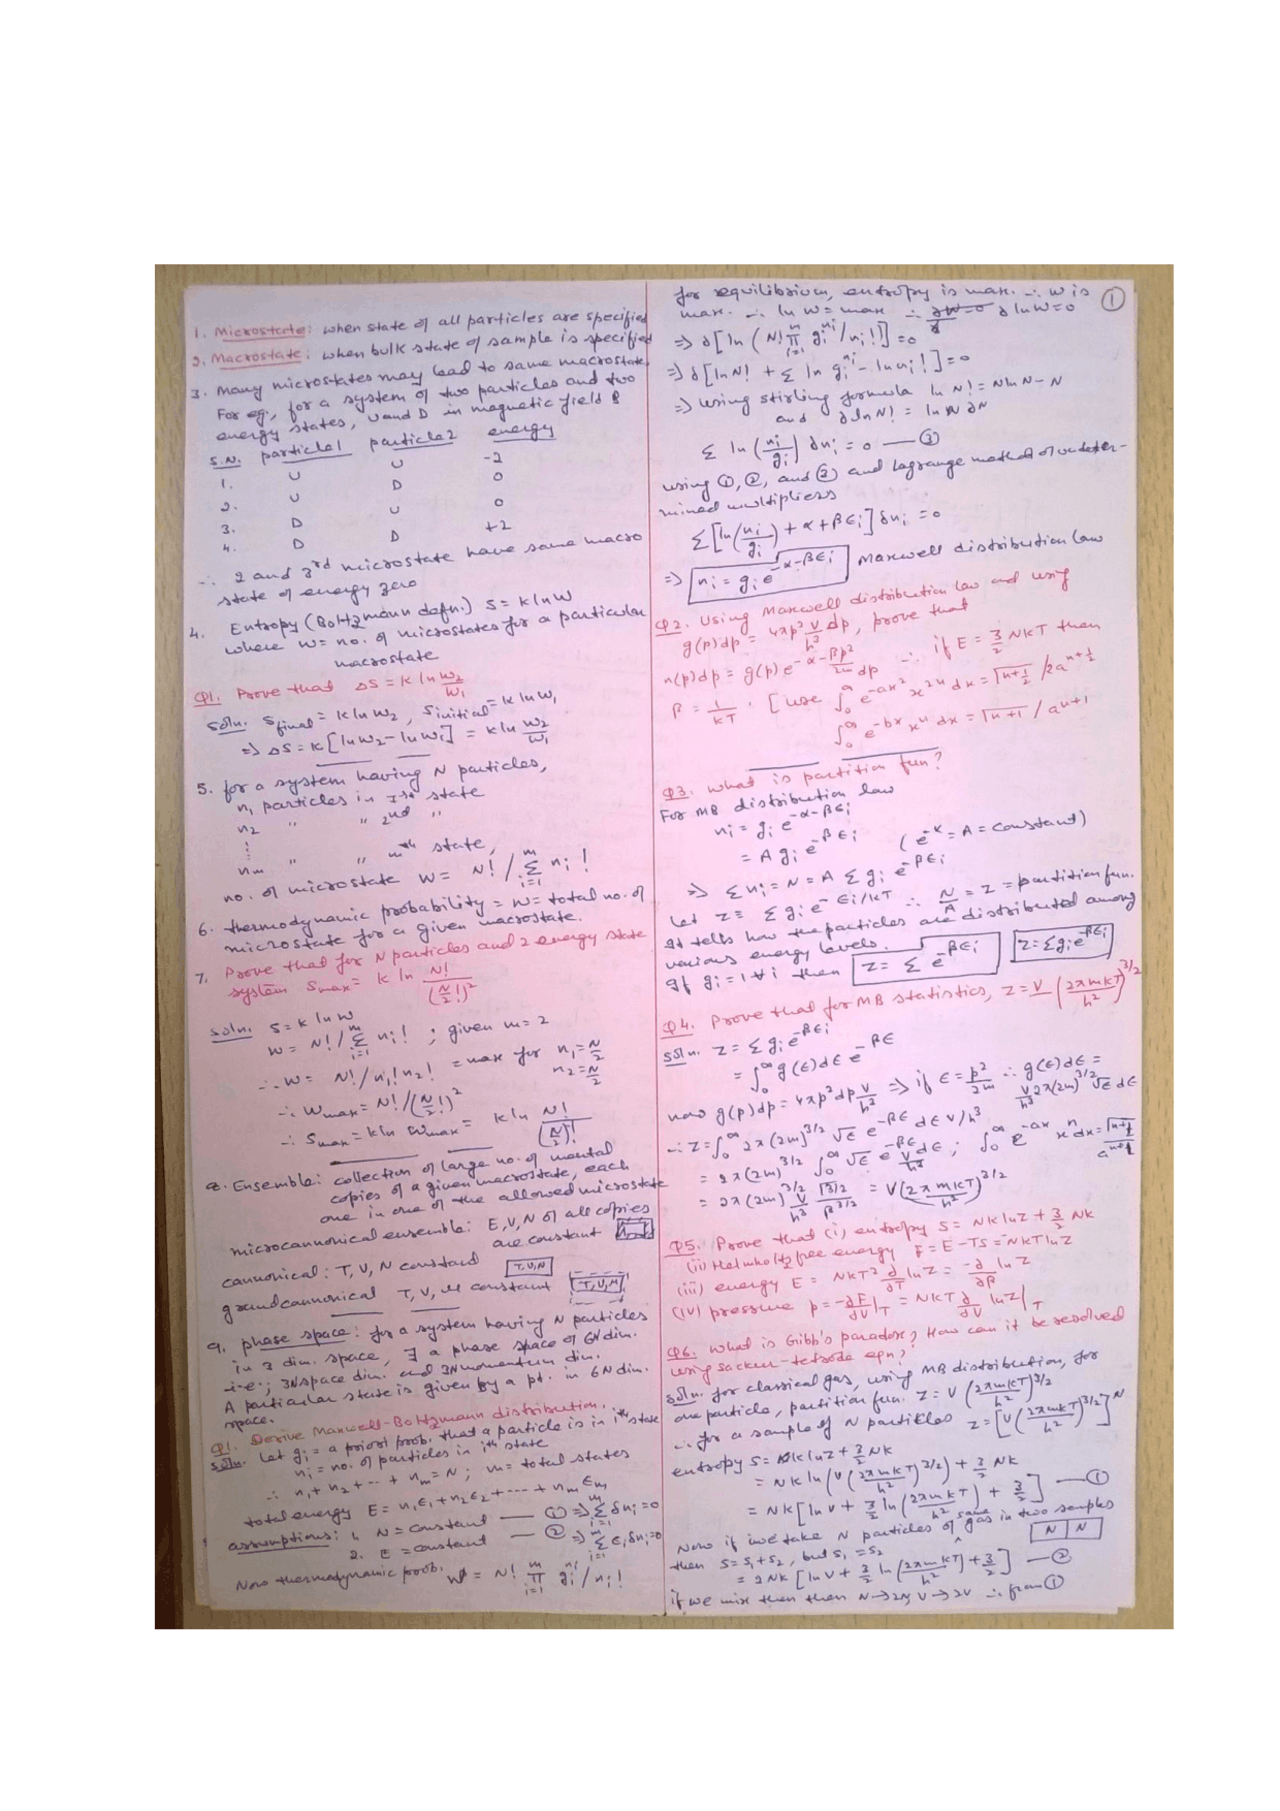 1. Microstate: when state of all particles are specified
2. Macrostate: when bulk state of sample is specified
3. Many microstates may lead to same macrostate.
For eg, for a system of two particles and two
energy states, U and D in magnetic field B
S.N. particle1 particle2 energy
1. U U -2
2. U D 0
3. D U 0
4. D D +2
∴ 2 and 3rd microstate have same macro
state of energy zero
4. Entropy (Boltzmann defn.) S = k ln W
where W = no. of microstates for a particular
macrostate
Q1. Prove that ΔS = k ln W2/W1
Soln. Sfinal = k ln W2, Sinitial = k ln W1
⇒ ΔS = k[ln W2 - ln W1] = k ln W2/W1
5. for a system having N particles,
n1 particles in Ist state
n2 " " 2nd "
nm " " mth state,
no. of microstate W = N! / Σ(i=1 to m) ni!
6. thermodynamic probability = W = total no. of
microstate for a given macrostate.
7. Prove that for N particles and 2 energy state
system Smax = k ln N!/(N/2 !)²
Soln. S = k ln W
W = N! / Σ(i=1 to m) ni! ; given m = 2
∴ W = N! / n1! n2! = max for n1 = N/2 n2 = N/2
∴ Wmax = N! / (N/2 !)²
∴ Smax = k ln Wmax = k ln N!/(N/2)!
8. Ensemble: collection of large no. of mental
copies of a given macrostate, each
one in one of the allowed microstate
microcannonical ensemble: E, V, N of all copies
are constant
cannonical: T, V, N constant T,V,N
grandcannonical T, V, μ constant T,V,M
9. phase space: for a system having N particles
in 3 dim. space, ∃ a phase space of 6N dim.
i.e.; 3N space dim. and 3N momentum dim.
A particular state is given by a pt. in 6N dim.
space.
Q1. Derive Maxwell-Boltzmann distribution.
Soln. Let gi = a priori prob. that a particle is in ith state
ni = no. of particles in ith state
∴ n1 + n2 + -- + nm = N ; m = total states
total energy E = n1ϵ1 + n2ϵ2 + ---- + nmϵm
assumptions: 1. N = constant — ① ⇒ Σ(i=1 to m) δni = 0
2. E = constant — ② ⇒ Σ(i=1 to m) ϵiδni = 0
Now thermodynamic prob. W = N! Π(i=1 to m) gi^ni / ni!
①
for equilibrium, entropy is max. ∴ W is
max. ∴ ln W = max ∴ ∂ ln W = 0
⇒ ∂[ln (N! Π(i=1 to m) gi^ni / ni!)] = 0
⇒ ∂[ln N! + Σ ln gi^ni - ln ni!] = 0
⇒ using stirling formula ln N! = N ln N - N
and ∂ ln N! = ln N ∂N
Σ ln (ni/gi) ∂ni = 0 — ③
using ①, ②, and ③ and lagrange method of undeter-
mined multipliers
Σ [ln (ni/gi) + α + βϵi] δni = 0
⇒ ni = gi e^(-α-βϵi) Maxwell distribution law
Q2. Using Maxwell distribution law and using
g(p)dp = 4πp² V/h³ dp, prove that
n(p)dp = g(p) e^(-α-βp²/2m) dp ∴ if E = 3/2 NkT then
β = 1/kT . [use ∫₀^∞ e^(-ax²) x^(2n) dx = Γ(n+1/2) / 2a^(n+1/2)
∫₀^∞ e^(-bx) x^n dx = Γ(n+1) / a^(n+1)
Q3. What is partition fun?
For MB distribution law
ni = gi e^(-α-βϵi)
= A gi e^(-βϵi) (e^(-α) = A = constant)
⇒ Σ ni = N = A Σ gi e^(-βϵi)
Let Z = Σ gi e^(-ϵi/kT) ∴ N/A = Z = partition fun.
It tells how the particles are distributed among
various energy levels.
If gi = 1 ∀ i then Z = Σ e^(-βϵi) Z = Σ gi e^(-βϵi)
Q4. Prove that for MB statistics, Z = V (2πmkT/h²)^(3/2)
Soln. Z = Σ gi e^(-βϵi)
= ∫₀^∞ g(ϵ) dϵ e^(-βϵ)
now g(p)dp = 4πp² dp V/h³ ⇒ if ϵ = p²/2m ∴ g(ϵ)dϵ = V/h³ 2π(2m)^(3/2) √ϵ dϵ
∴ Z = ∫₀^∞ 2π (2m)^(3/2) √ϵ e^(-βϵ) dϵ V/h³
= 2π (2m)^(3/2) ∫₀^∞ √ϵ e^(-βϵ) V/h³ dϵ ; ∫₀^∞ e^(-ax) x^n dx = Γ(n+1)/a^(n+1)
= 2π (2m)^(3/2) V/h³ Γ(3/2)/β^(3/2) = V (2πmkT/h²)^(3/2)
Q5. Prove that (i) entropy S = Nk ln Z + 3/2 Nk
(ii) Helmholtz free energy F = E - TS = -NkT ln Z
(iii) energy E = NkT² ∂/∂T ln Z = -∂/∂β ln Z
(iv) pressure p = -∂F/∂V|T = NkT ∂/∂V ln Z|T
Q6. What is Gibb's paradox? How can it be resolved
using sackur-tetrode eqn?
Soln. for classical gas, using MB distribution, for
one particle, partition fun. Z = V (2πmkT/h²)^(3/2)
∴ for a sample of N particles Z = [V (2πmkT/h²)^(3/2)]^N
entropy S = Nk ln Z + 3/2 Nk
= Nk ln (V (2πmkT/h²)^(3/2)) + 3/2 Nk
= Nk [ln V + 3/2 ln (2πmkT/h²) + 3/2] — ①
Now if we take N particles of same gas in two samples
N N
then S = S1 + S2, but S1 = S2
= 2Nk [ln V + 3/2 ln (2πmkT/h²) + 3/2] — ②
if we mix them then N → 2N, V → 2V ∴ from ①